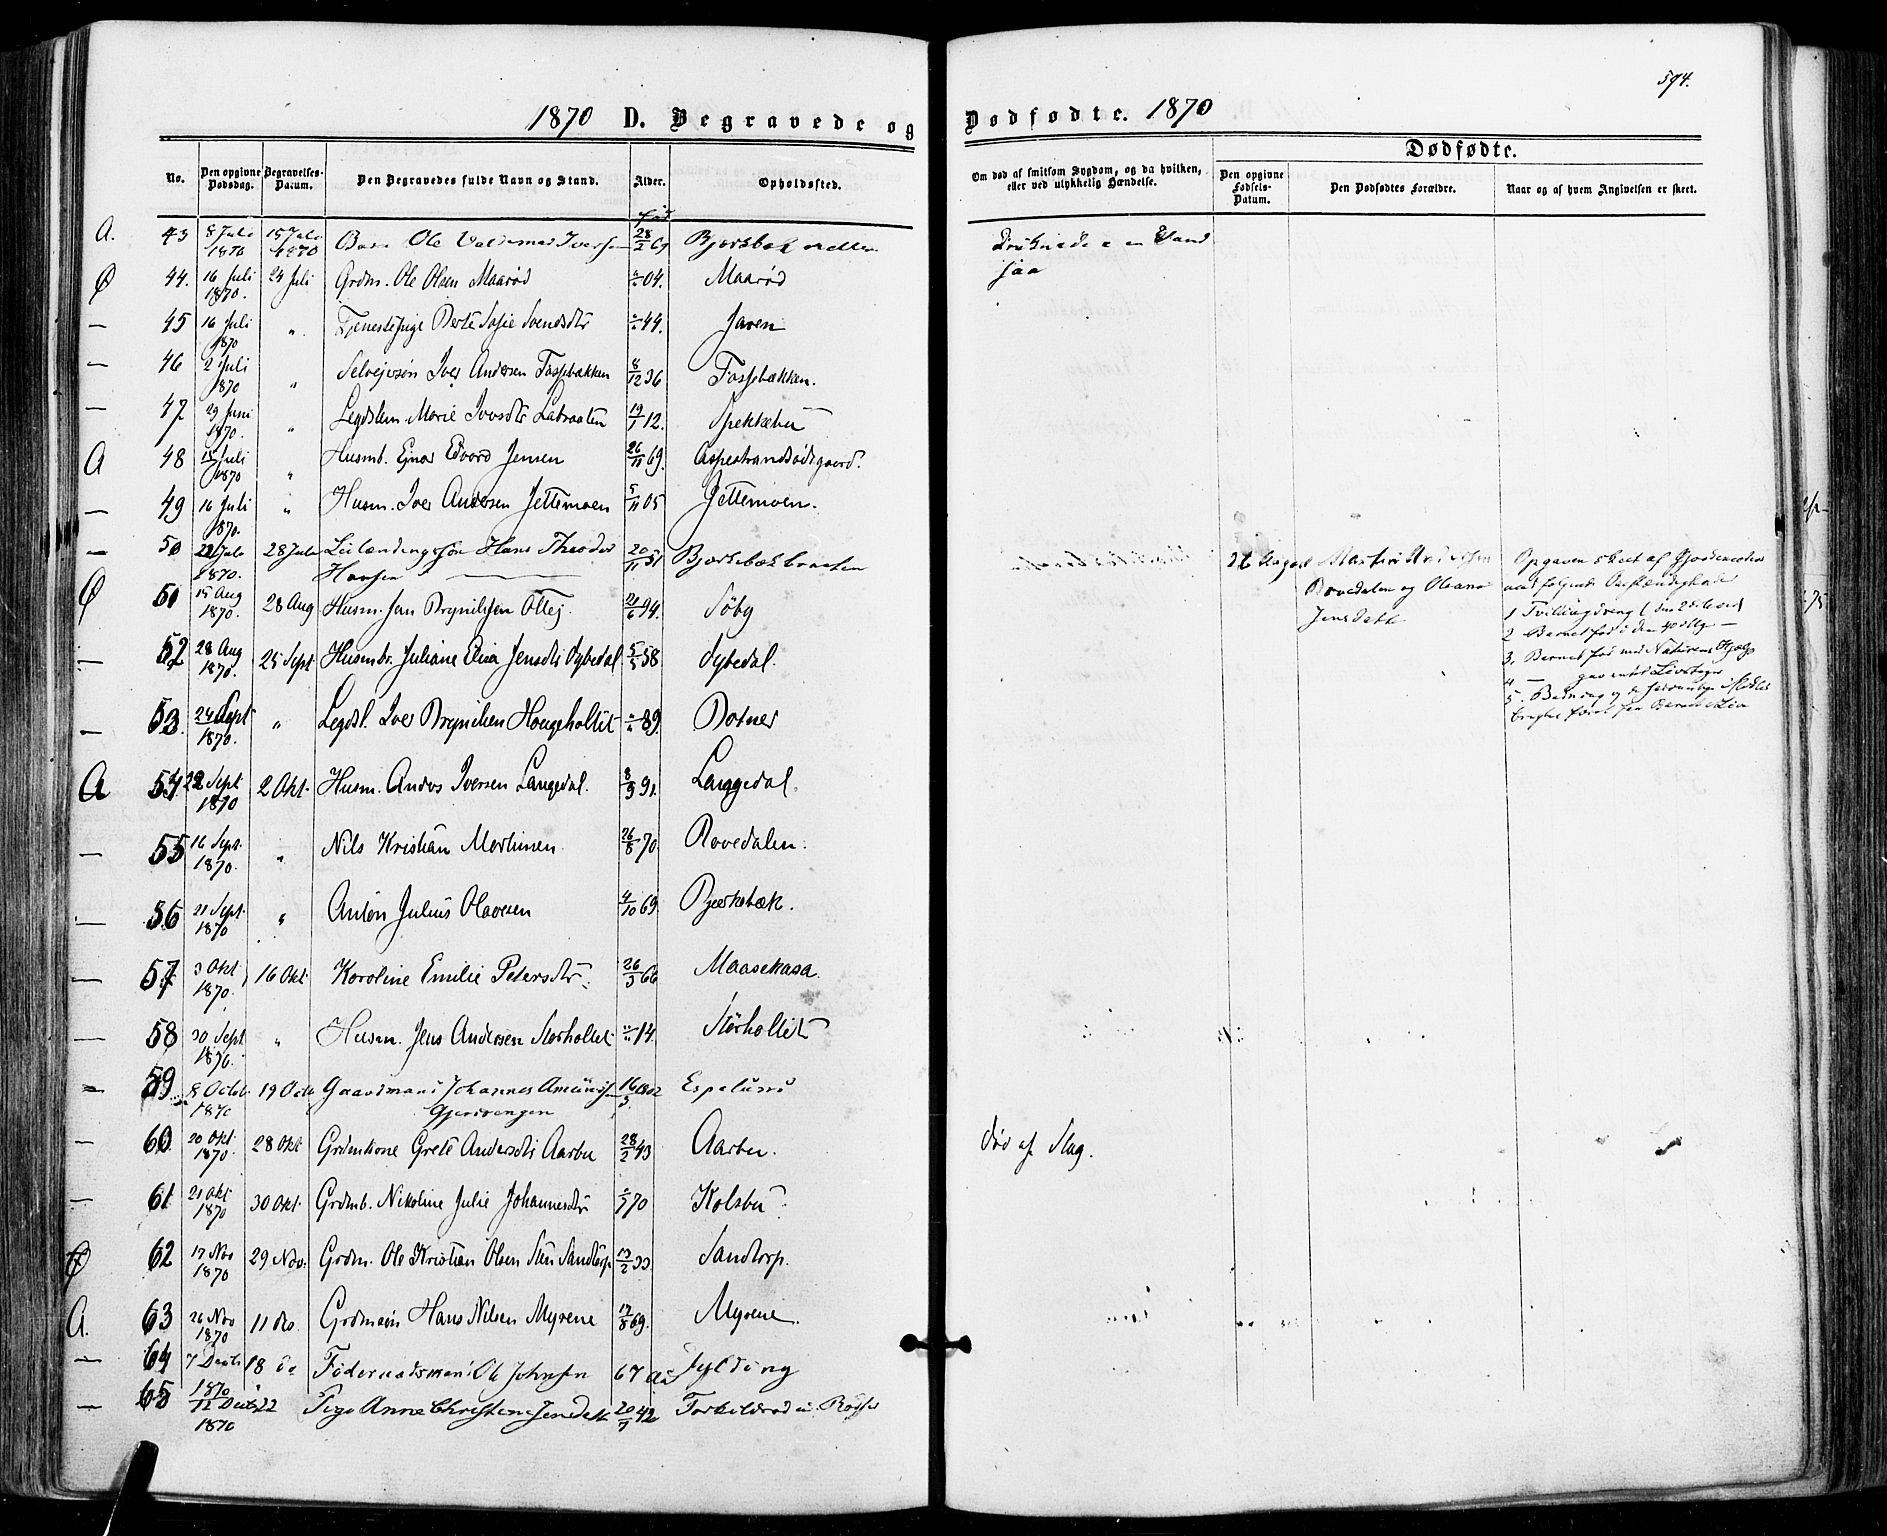 594.
1870 D. Begravede og Dødfødte. 1870
No. Den opgivne Dødsdag. Begravelses-Datum. Den Begravedes fulde Navn og Stand. Alder. Opholdssted. Om død af smitsom Sygdom, og da hvilken, eller ved ulykkelig Hændelse. Dødfødte.
Den opgivne Fødsels-Datum. Den Dødfødtes Forældre. Naar og af hvem Angivelsen er skeet.
A. 43 8 Juli 1870 15 Juli 1870 Barn Ole Valdemar Iversen født 28/2 69 Bjerkebæk Druknede i en Vand
Ø 44. 16 Juli 1870. 24 Juli Grdm. Ole Olsen Maarød 04. Maarød
— 45 16 Juli 1870 " Tjenestepige Berte Sofie Svendsdtr 44. Jaren
— 46 2 Juli 1870 " Selveiersøn Iver Andersen Fossebækken 8/12 36 Fossebækken.
— 47. 29 Juni 1870. " Legdslem. Marie Iversdtr 19/1 12. Spektebu
A 48 15 Juli 1870 " Husmb. Ejnar Edvard Jensen 26/11 69. Aspestrandsødegaard.
— 49 16 Juli 1870. " Husm. Iver Andersen Jettemoen 5/11 05 Jettemoen.
— 50 22 Juli 1870. 28 Juli Leilændingssøn Hans Theodor Hansen 20/11 51 Bjerkebækbraaten
26 August Martin Andersen Rovedalen og Oleana Jensdatter
Opgaven skeet af Gjordemoderen
med følgende Omstændigheder
1 Tvillingdreng
2 Barnet
3, Barnet fød med Naturens Hjælp
4 —
5.
Ø 51 15 Aug 1870. 28 Aug Husm. Jan Brynildsen Ottej. 21/6 94. Söby
— 52 28 Aug 1870. 25 Sept Husmbr. Juliane Elisa Jensdtr Dybedal 5/5 58 Dybedal.
— 53. 24 Sept 1870. " Legdsl. Iver Brynilsen Haugeholtet 89. Botner
A 54 22 Sept 1870 2 Okt. Husm. Anders Iversen Langedal. 8/3 91. Langgedal.
— 55 16 Sept. 1870. " Nils Kristian Martinsen 26/8 70 Rovedalen.
— 56 21 Sept. 1870 " Anton Julius Olavesen 4/10 69. Bjerkebæk.
— 57 3 Okt 1870. 16 Okt Karoline Emilie Petersdtr. 26/3 66 Maasekasa.
— 58 30 Sept 1870. " Husm. Jens Andersen Storholtet 14. Storholtet
— 59 8 Octob 1870 19 Octo Gaardmand Johannes Amundsen Gjersvengen 16/3 1802 Espelund
— 60 20 Okt. 1870. 28 Okt Grdmkone Grete Andersdtr Aarbu 28/2 43 Aarbu. død af Slag.
— 61 21 Okt 1870 30 Okt. Grdmb. Nikoline Julie Johannesdtr 70 Kolsbu.
Ø 62 17 Nov 1870 29 Nov. Grdm. Ole Kristian Olsen Sandtorp 13/2 33. Sandtorp.
A. 63 26 Nov 1870 11 De. Grdmsøn Hans Nilsen Myrene 17/8 69. Myrene.
— 64 7 Decb 1870 18 do Føderaadsmand Ole Johnsen 67 Aar
— 65 12 Decb 1870 22 Pige Anne Christine Jensdatter 20/7 42 Torkildsrød